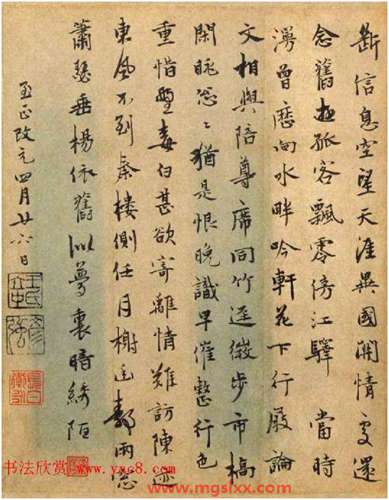 斷信息空望天涯異國關情更還
念舊孤客飄零傍江驛 當時
曾歷向水畔吟軒花下行廚論
文相與陪尊席同竹逕微步市橋
閑眺忽〻猶是恨晚識早催整行色
重惜白甚欲寄離情難訪陳迹
東風不到秦樓側任月榭
蕭瑟垂楊依舊似夢裏時綺陌
至正改元四月廿六日
王氏立中
彥強
书法欣赏 www.yac8.com
www.mgsixx.com